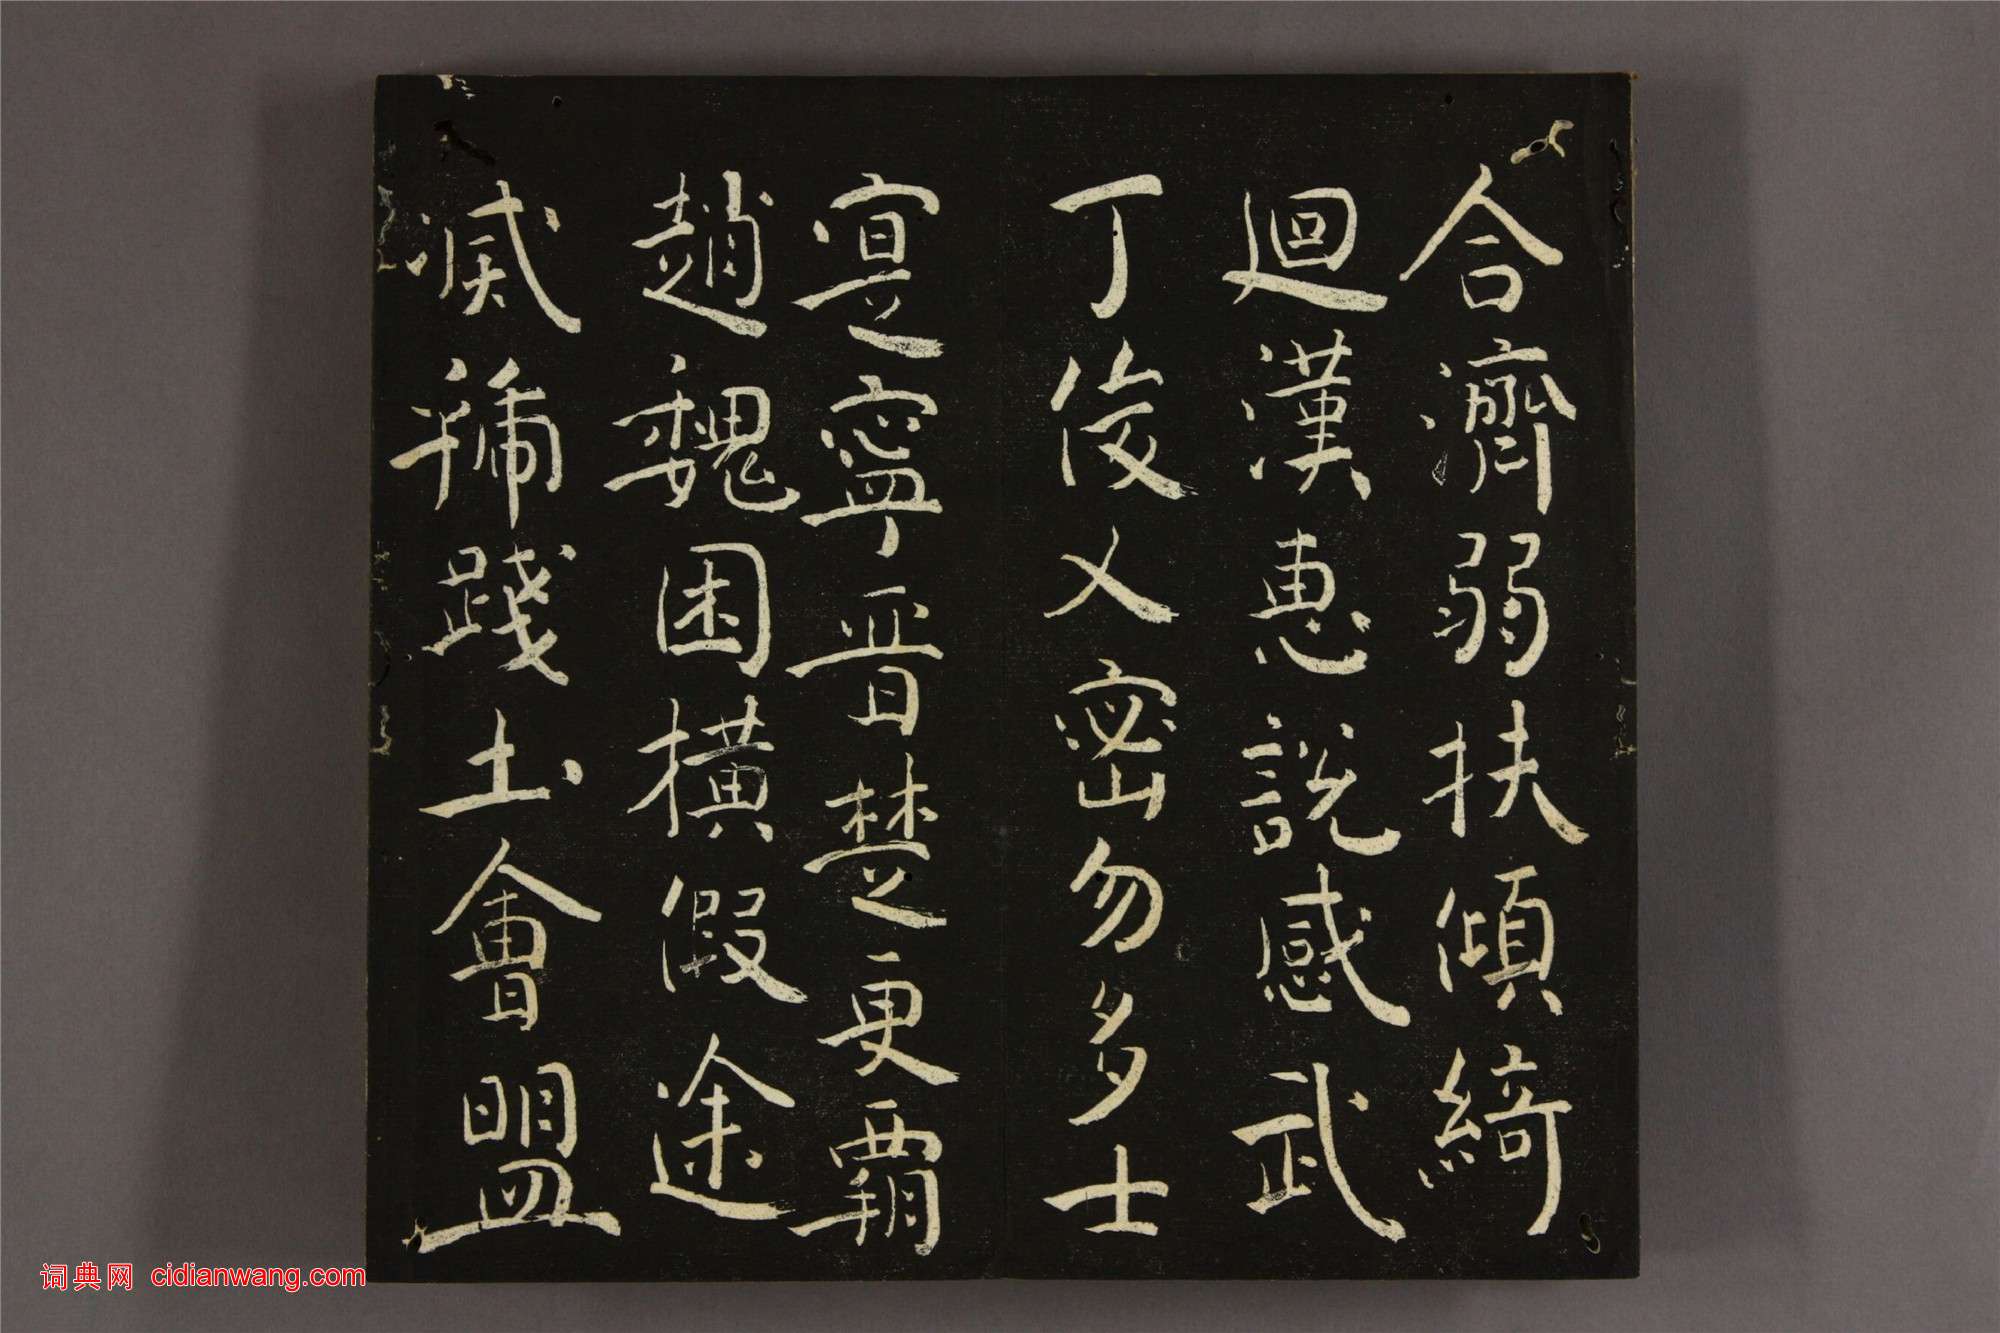 合濟弱扶傾綺
迴漢惠說感武
丁俊乂密勿多士
寔寧晉楚更霸
趙魏困橫假途
滅虢踐土會盟
词典网 cidianwang.com